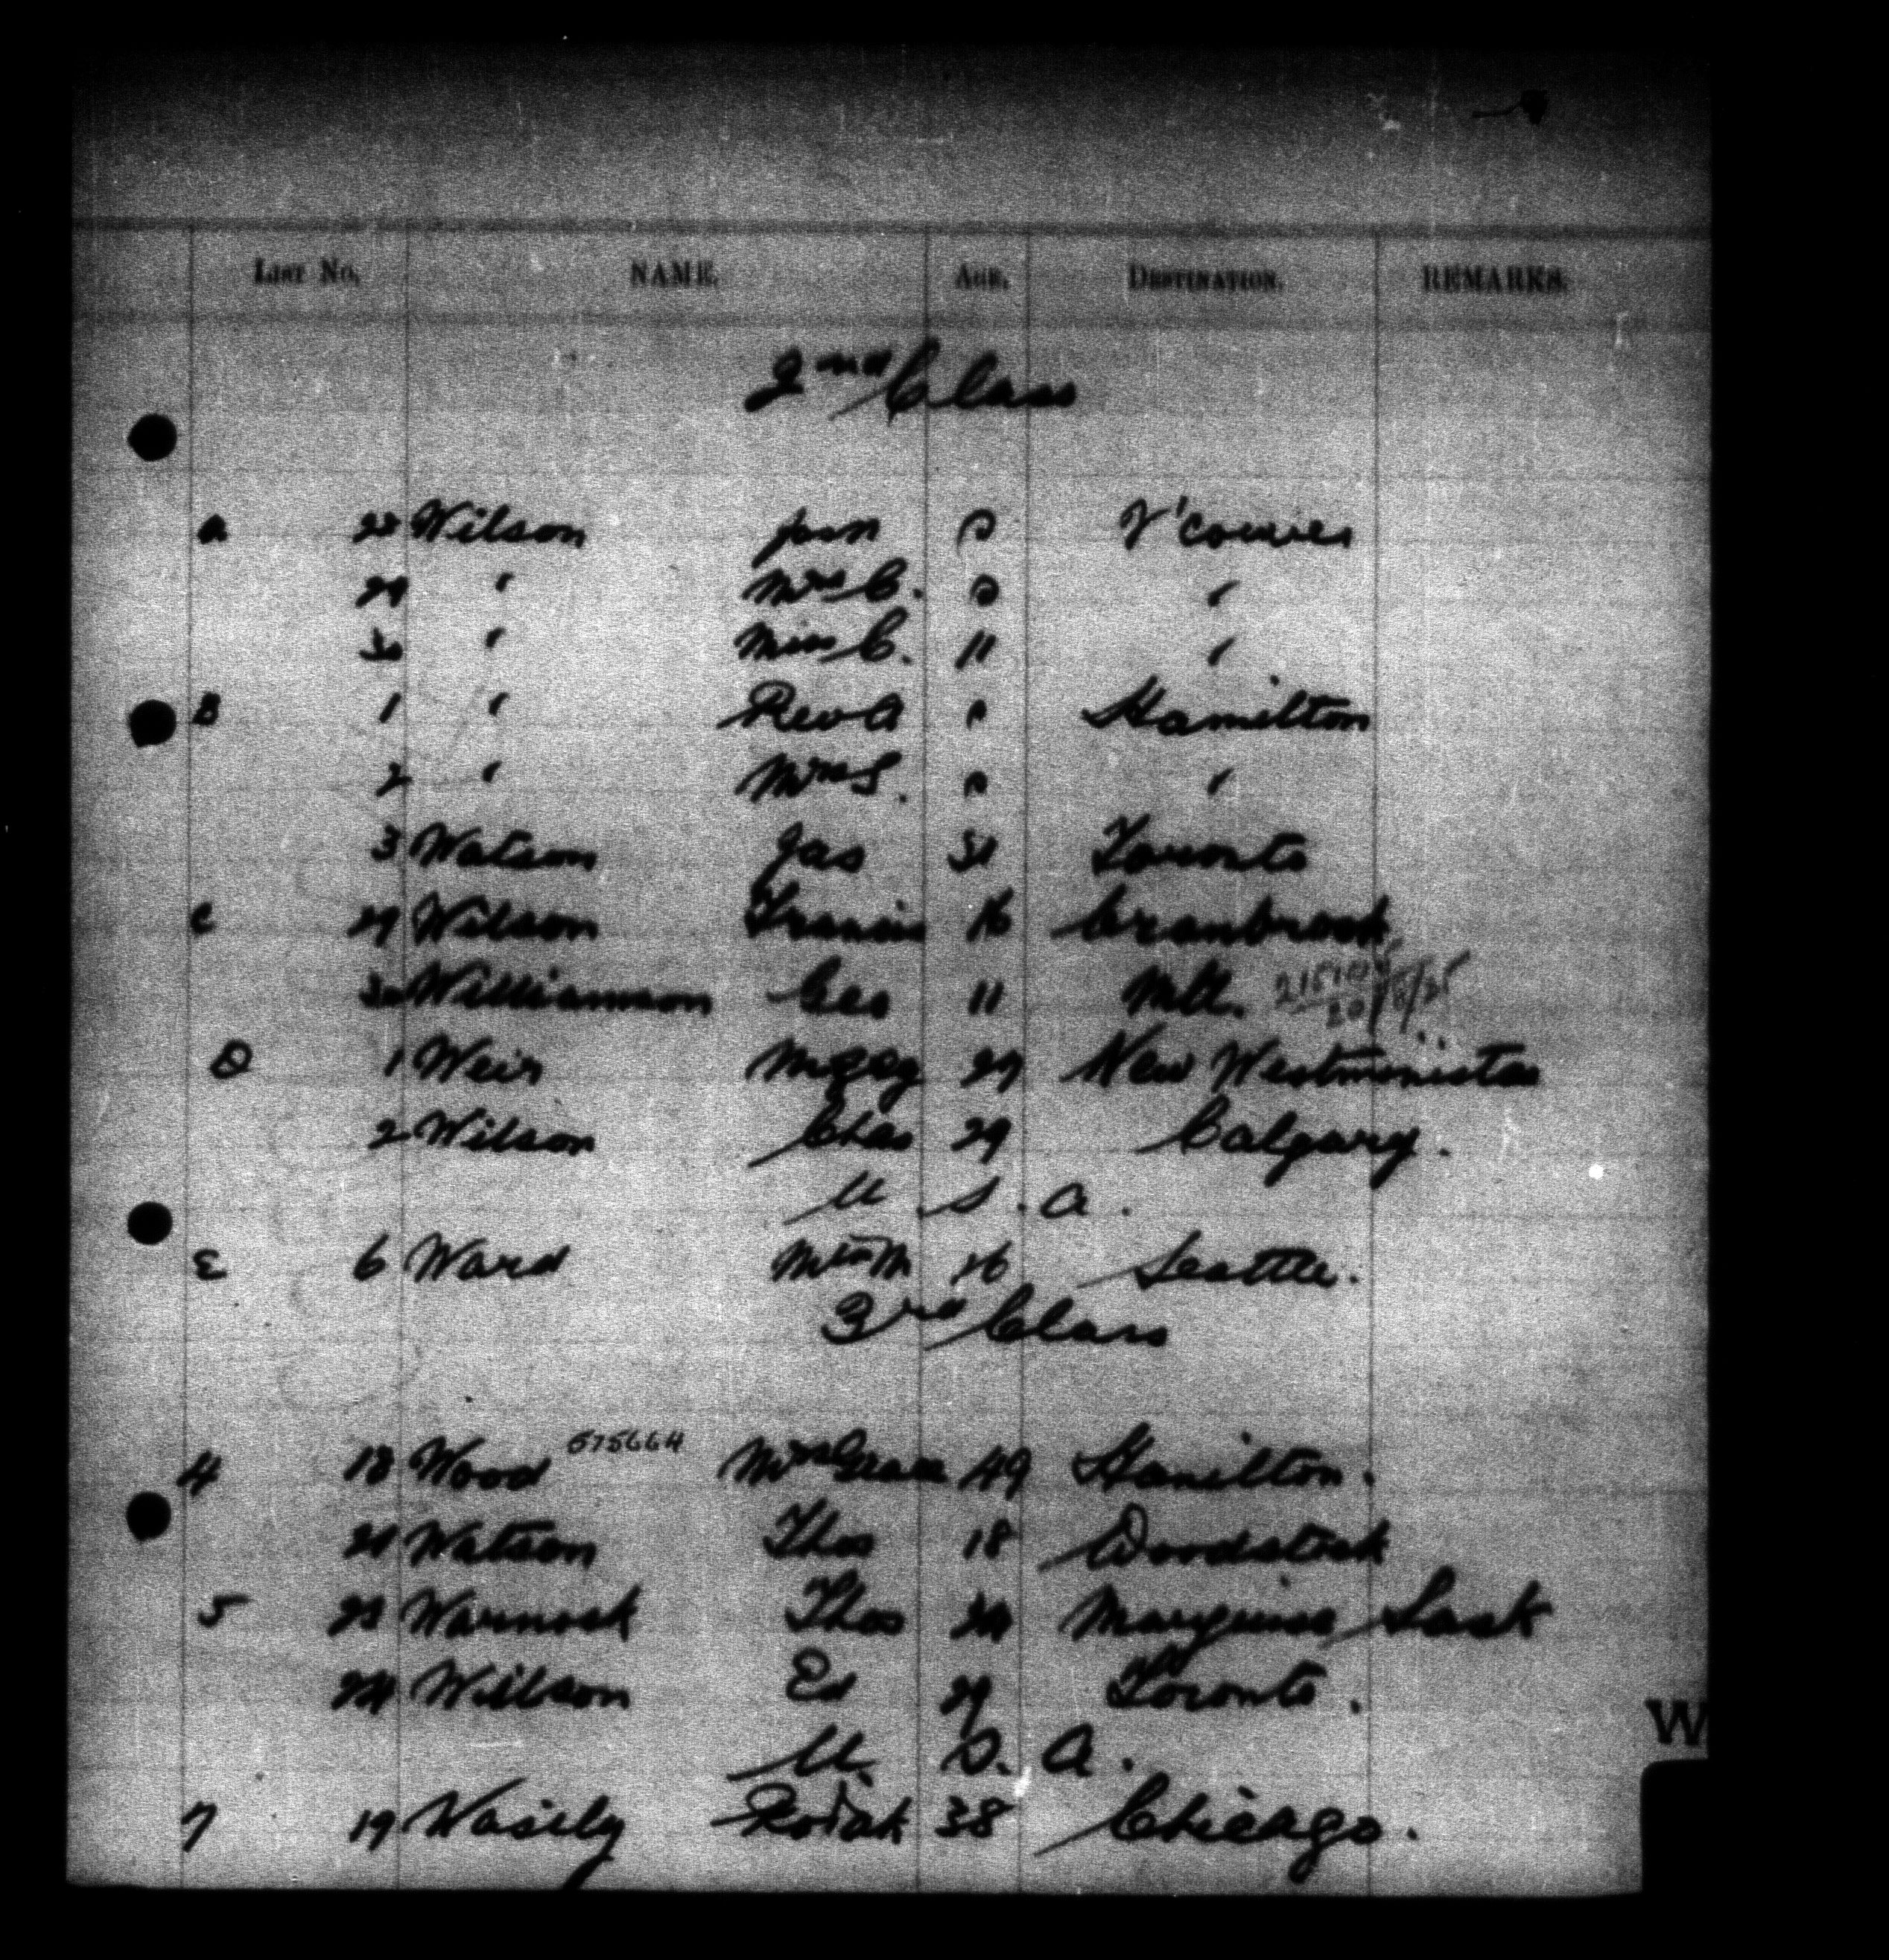 List No. NAME. Age. Destination. REMARKS.
2nd Class
A 28 Wilson John V'couver
29 " Mrs C. "
30 " Miss C. 11 "
B 1 " Rev A Hamilton
2 " Mrs S. "
3 Watson Jas 31 Toronto
C 29 Wilson Francis 16 Cranbrook
30 Williamson Geo 11 Mtl.
D 1 Weir 29 New Westminister
2 Wilson Chas 29 Calgary.
U.S.A.
E 6 Ward Miss M 16 Seattle.
3rd Class
4 18 Wood 575664 Mrs Grace 49 Hamilton.
21 Watson Thos 18 Woodstock
5 23 Warnock Thos 24 Marquis Sask
24 Willson Ed 29 Toronto.
U.S.A.
7 19 Wasily 38 Chicago.
W